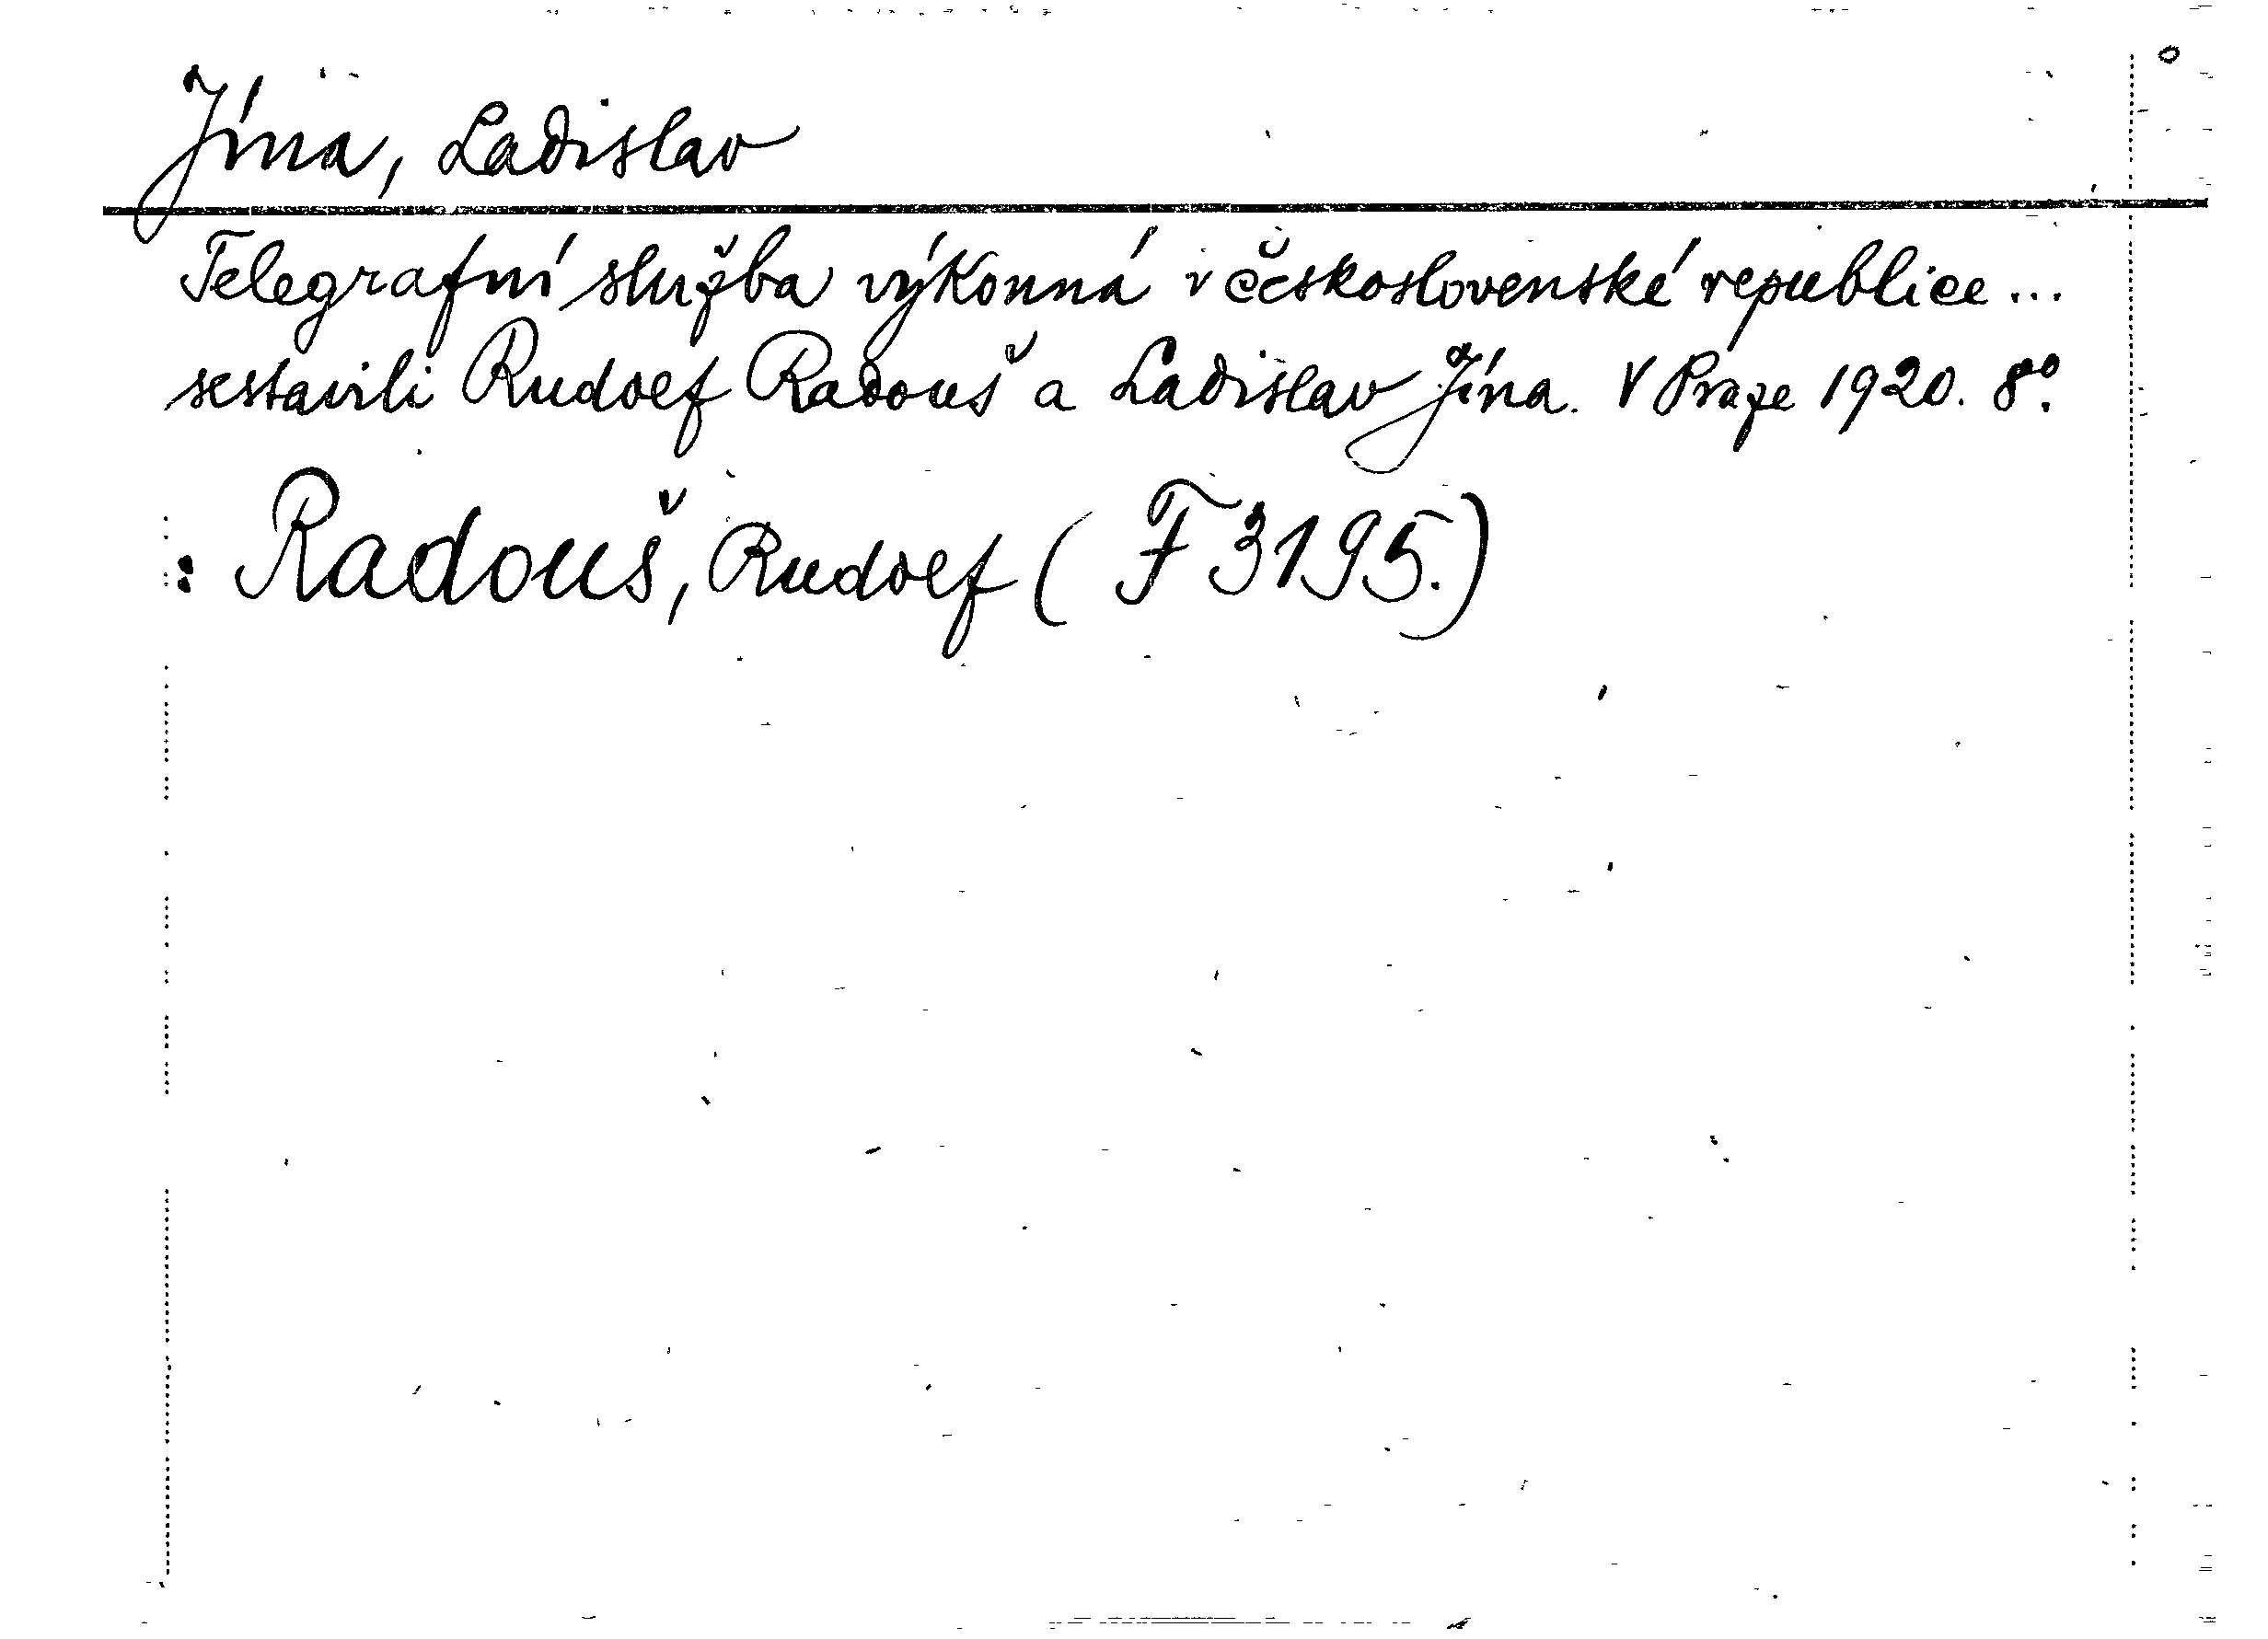 Jína, Ladislav
Telegrafní služba výkonná v československé republice...
sestavili Rudolf Radouš a Ladislav Jína. V Praze 1920. 8º.
: Radouš, Rudolf (F 3195.)